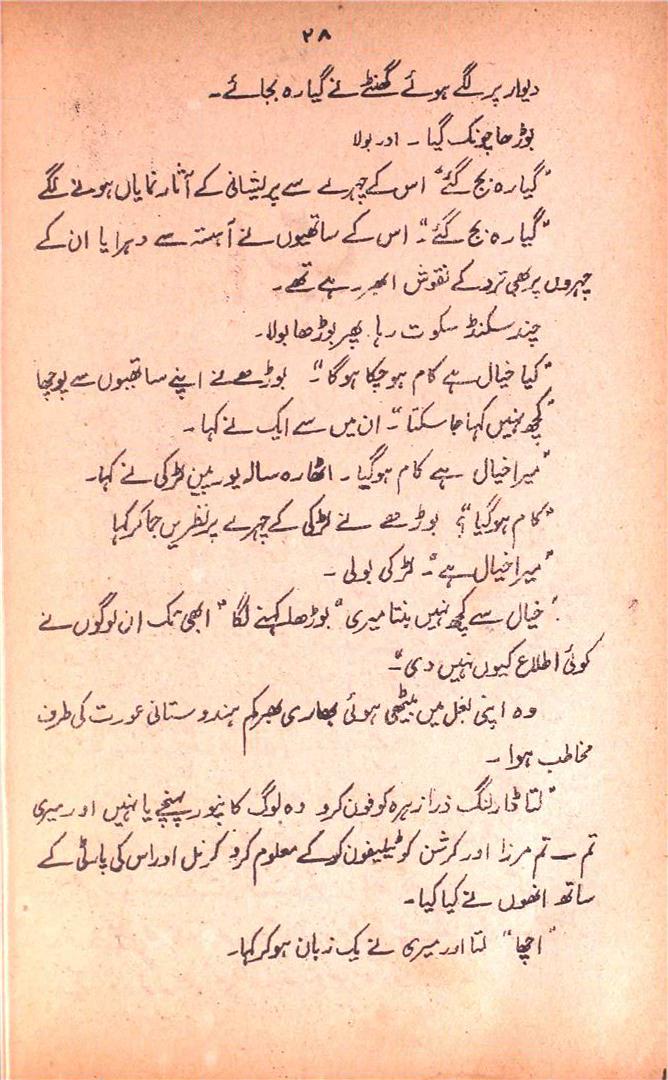 ۲۸
دیوار پر لگے ہوئے گھنٹے نے گیارہ بجائے۔
بوڑھا چونک گیا۔ اور بولا
"گیارہ بج گئے" اس کے چہرے سے پریشانی کے آثار نمایاں ہونے لگے
"گیارہ بج گئے"۔ اس کے ساتھیوں نے آہستہ سے دہرایا ان کے
چہروں پر بھی تردد کے نقوش ابھر رہے تھے۔
چند سکنڈ سکوت رہا۔ پھر بوڑھا بولا۔
"کیا خیال ہے کام ہو چکا ہوگا"۔ بوڑھے نے اپنے ساتھیوں سے پوچھا
"کچھ نہیں کہا جا سکتا"۔ ان میں سے ایک نے کہا۔
"میرا خیال ہے کام ہوگیا۔ اٹھارہ سالہ یورپین لڑکی نے کہا۔
"کام ہوگیا"؟ بوڑھے نے لڑکی کے چہرے پر نظریں جما کر کہا
"میرا خیال ہے"۔ لڑکی بولی۔
"خیال سے کچھ نہیں بنتا میری" بوڑھا کہنے لگا" ابھی تک ان لوگوں نے
کوئی اطلاع کیوں نہیں دی"۔
وہ اپنی بغل میں بیٹھی ہوئی بھاری بھرکم ہندوستانی عورت کی طرف
مخاطب ہوا۔
"لتا ڈارلنگ ذرا زہرہ کو فون کرو وہ لوگ کانپور پہنچے یا نہیں اور میری
تم — تم مرزا اور کرشن کو ٹیلیفون کر کے معلوم کرو کرنل اور اس کی پارٹی کے
ساتھ انھوں نے کیا کیا۔
"اچھا" لتا اور میری نے یک زبان ہو کر کہا۔